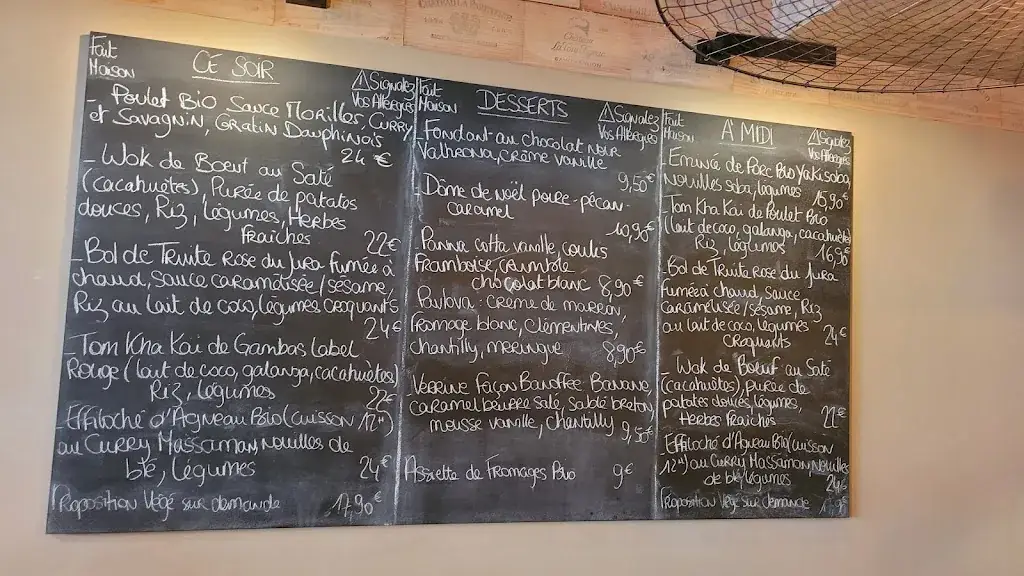 Fait
Maison
CE SOIR
⚠Signalez
Vos Allergies
- Poulet Bio Sauce Morilles CURRY
et Savagnin, Gratin Dauphinois
24 €
- Wok de Boeuf au Saté
(cacahuètes) Purée de patates
douces, Riz, légumes, Herbes
Fraîches
22€
- Bol de Truite Rose du Jura fumée à
chaud, Sauce caramélisée/sésame,
Riz au lait de coco, légumes croquants
24€
- Tom Kha Kai de Gambas Label
Rouge (lait de coco, galanga, cacahuètes)
Riz, légumes
22€
Effiloché d'Agneau Bio (cuisson 12H)
au CURRY MASSAMAN, nouilles de
blé, légumes
24€
Proposition Végé sur demande
17,90€
Fait
Maison
DESSERTS
⚠Signalez
Vos Allergies
- Fondant au chocolat noir
Valhrona, crème vanille
9,50€
- Dôme de noël poire-pécan-
caramel
10,90€
Panna cotta vanille, coulis
Framboise, crumble
chocolat blanc 8,90€
- Pavlova : crème de marron,
fromage blanc, clémentines,
chantilly, meringue 8,90€
Verrine Façon Banoffee Banane,
caramel beurre salé, sablé breton,
mousse vanille, chantilly 9,50€
Assiette de Fromages Bio 9€
Fait
Maison
A MIDI
⚠Signalez
Vos Allergies
- Emincé de Porc Bio Yakisoba,
Nouilles soba, légumes
15,90€
Tom Kha Kai de Poulet Bio
(lait de coco, galanga, cacahuètes)
Riz, légumes 16,90€
- Bol de Truite rose du Jura
fumée à chaud, Sauce
caramélisée/sésame, Riz
au lait de coco, légumes
croquants 24€
Wok de Boeuf au Saté
(cacahuètes), purée de
patates douces, légumes,
Herbes fraîches 22€
Effiloché d'Agneau Bio (cuisson
12H) au CURRY MASSAMAN, Nouilles
de blé, légumes 24€
Proposition Végé sur demande